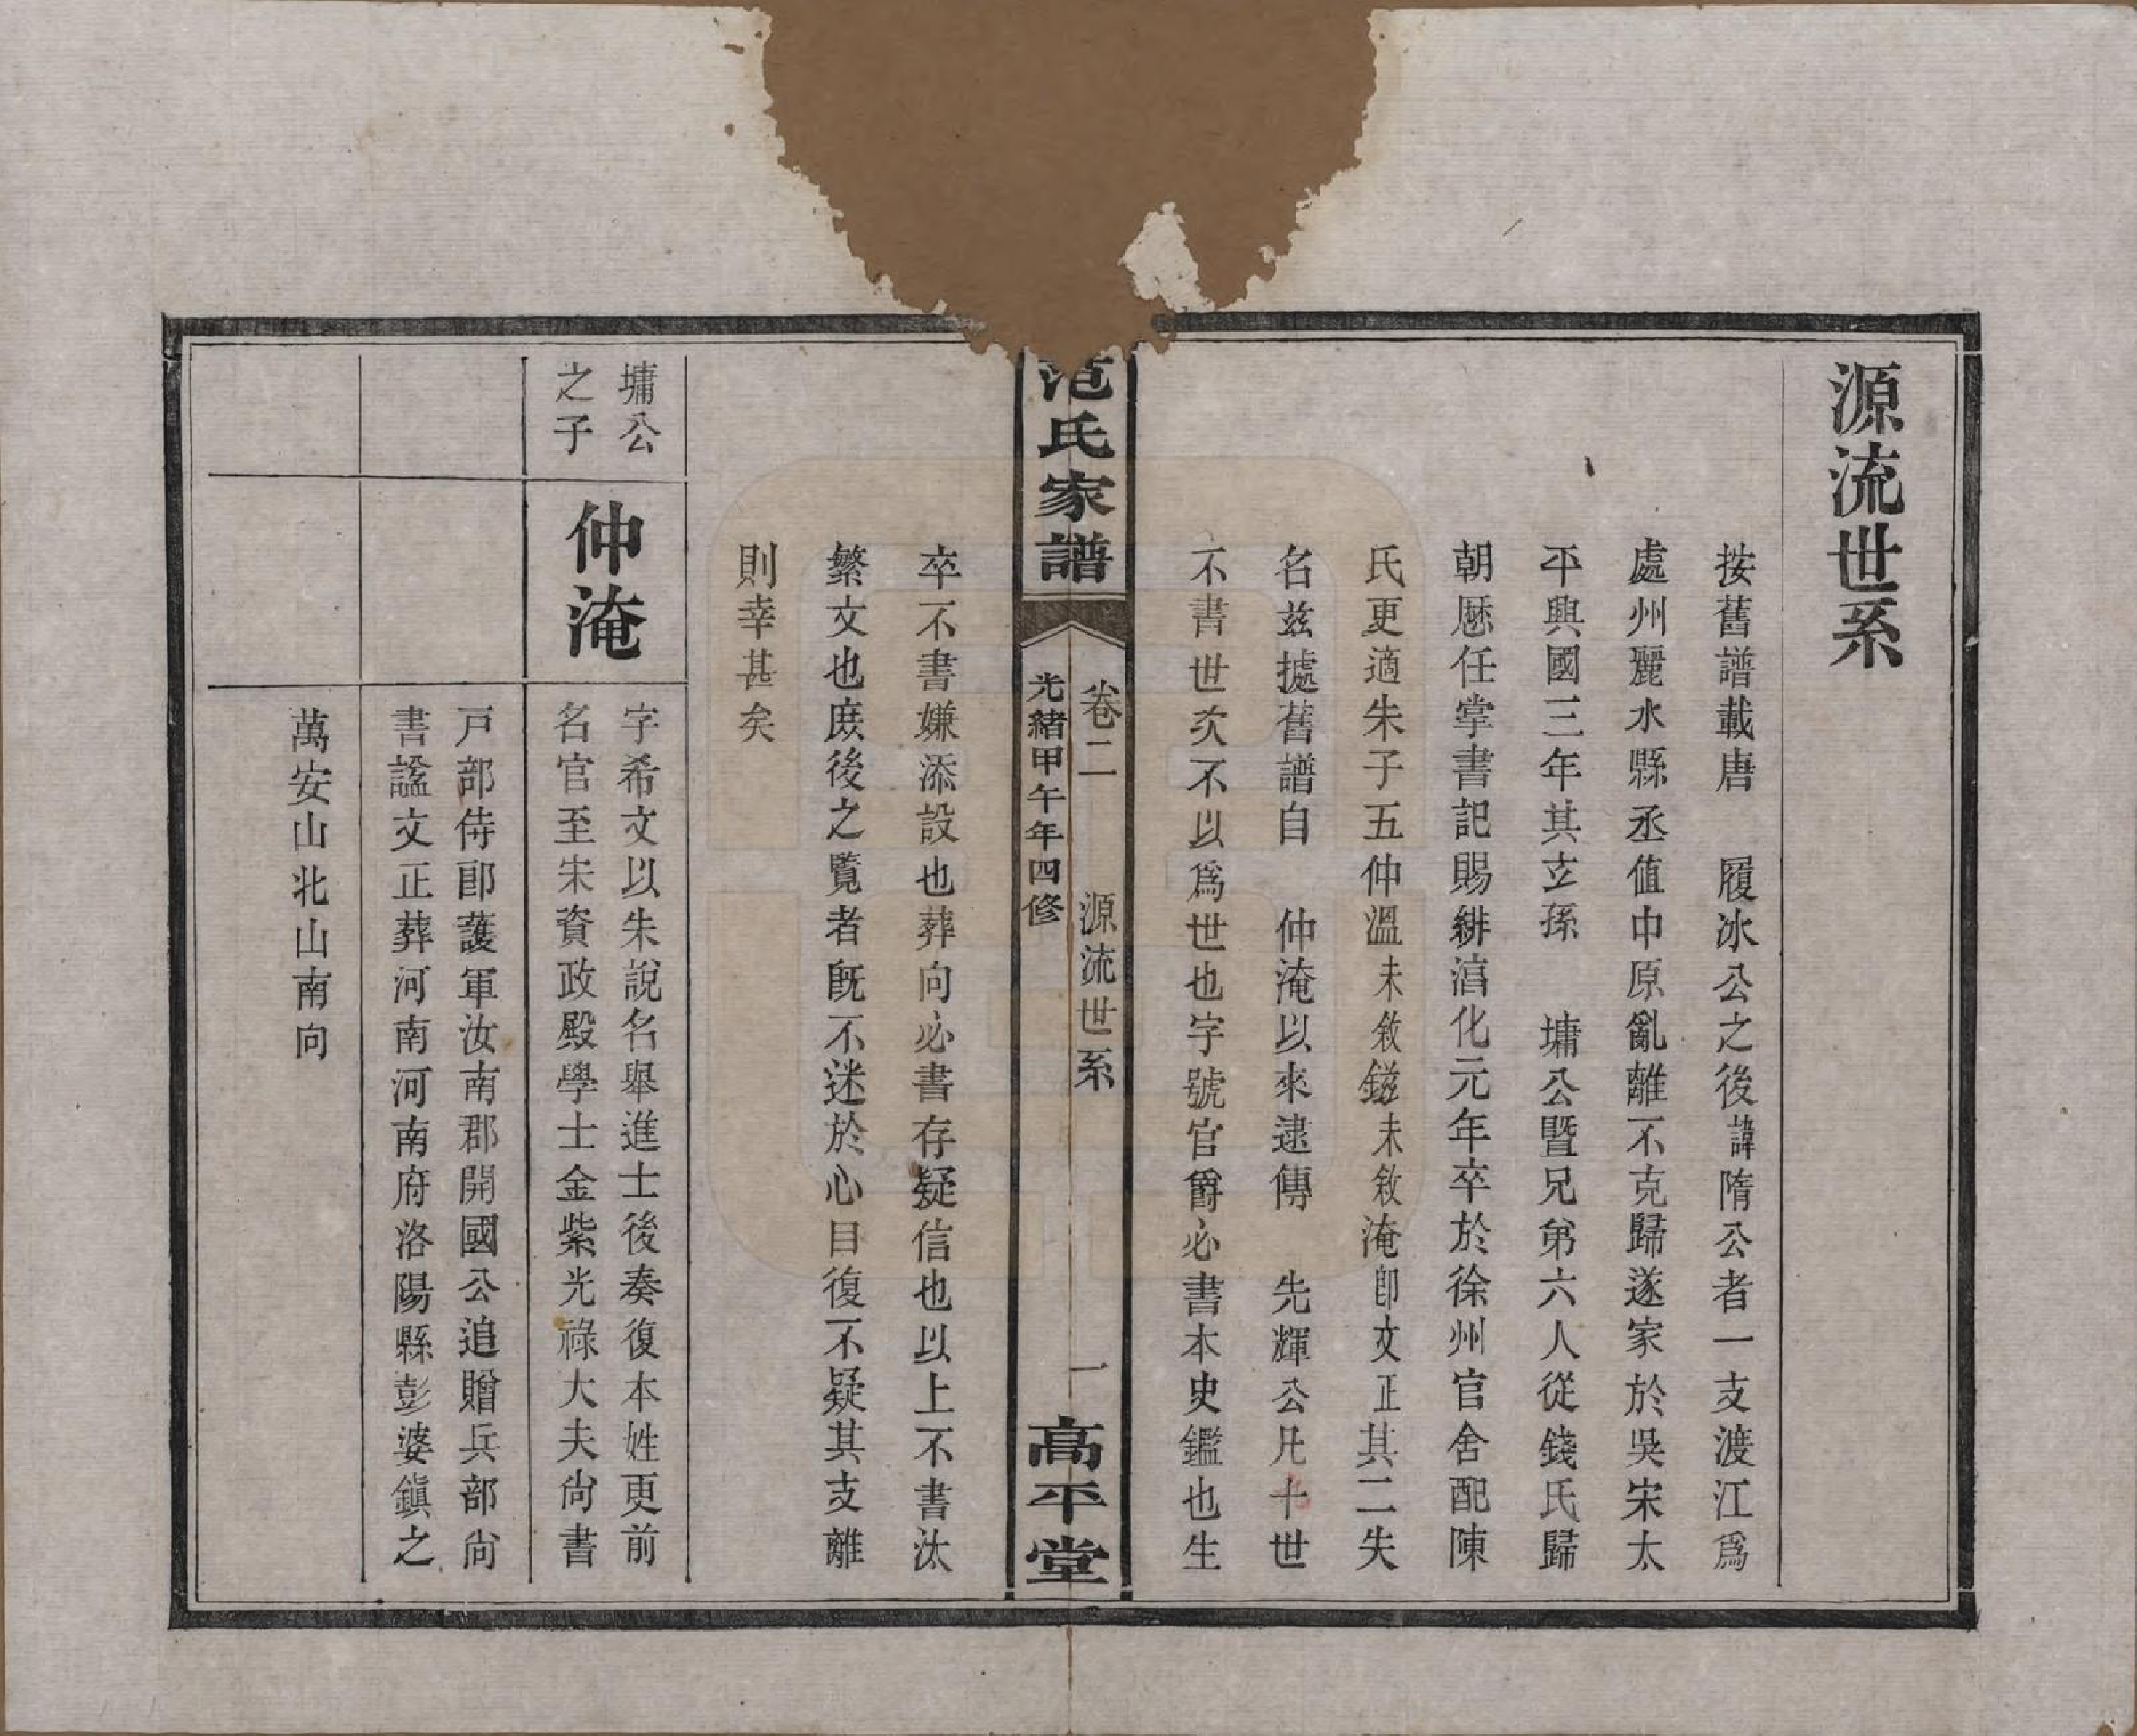 源流世系
按舊譜載唐　履冰公之後諱隋公者一支渡江爲
處州麗水縣丞值中原亂離不克歸遂家於吳宋太
平興國三年其玄孫　墉公暨兄弟六人從錢氏歸
朝歷任掌書記賜緋滈化元年卒於徐州官舍配陳
氏更適朱子五仲溫未敘鎡未敘淹即文正其二失
名茲據舊譜自　仲淹以來逮傳　先輝公凡十世
不書世次不以爲世也字號官爵必書本史鑑也生
范氏家譜
卷二　源流世系　一
光緒甲午年四修
高平堂
卒不書嫌添設也葬向必書存疑信也以上不書汰
繁文也庶後之覽者既不迷於心目復不疑其支離
則幸甚矣
墉公
之子
仲淹
字希文以朱說名舉進士後奏復本姓更前
名官至宋資政殿學士金紫光祿大夫尚書
戸部侍郎護軍汝南郡開國公追贈兵部尚
書諡文正葬河南河南府洛陽縣彭婆鎮之
萬安山北山南向